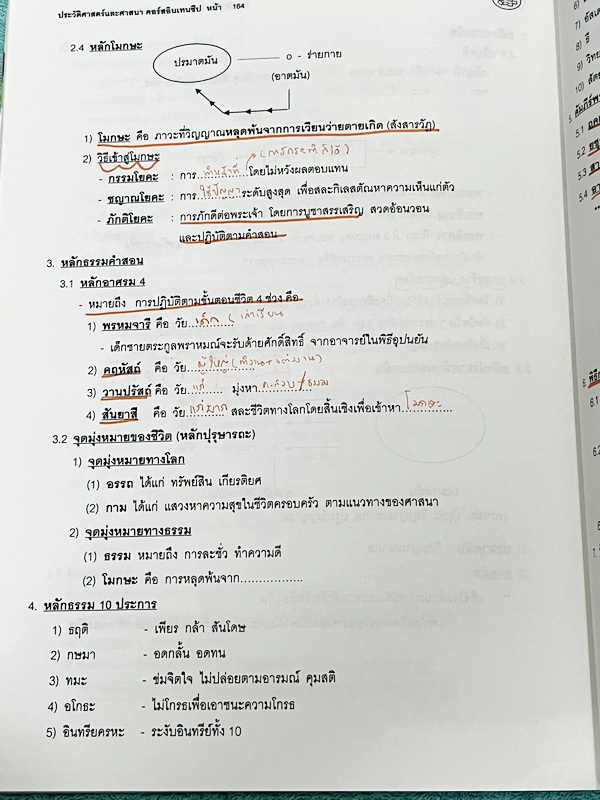 ประวัติศาสตร์และศาสนา คอร์สอินเทนซีป หน้า 164
2.4 หลักโมกษะ
ปรมาตมัน
o - ร่ายกาย
(อาตมัน)
1) โมกษะ คือ ภาวะที่วิญญาณหลุดพ้นจากการเวียนว่ายตายเกิด (สังสารวัฏ)
2) วิธีเข้าสู่โมกษะ
- กรรมโยคะ : การ ทำหน้าที่ โดยไม่หวังผลตอบแทน
- ชญาณโยคะ : การ ใช้ปัญญา ระดับสูงสุด เพื่อสละกิเลสตัณหาความเห็นแก่ตัว
- ภักติโยคะ : การภักดีต่อพระเจ้า โดยการบูชาสรรเสริญ สวดอ้อนวอน
และปฏิบัติตามคำสอน
3. หลักธรรมคำสอน
3.1 หลักอาศรม 4
- หมายถึง การปฏิบัติตามขั้นตอนชีวิต 4 ช่วง คือ
1) พรหมจารี คือ วัย เด็ก (เล่าเรียน
- เด็กชายตระกูลพราหมณ์จะรับด้ายศักดิ์สิทธิ์ จากอาจารย์ในพิธีอุปนยัน
2) คฤหัสถ์ คือ วัย ผู้ใหญ่ (ทำงาน+แต่งงาน)
3) วานปรัสถ์ คือ วัย แก่ มุ่งหา ธรรม
4) สันยาสี คือ วัย แก่มาก สละชีวิตทางโลกโดยสิ้นเชิงเพื่อเข้าหา โมกษะ
3.2 จุดมุ่งหมายของชีวิต (หลักปุรุษารถะ)
1) จุดมุ่งหมายทางโลก
(1) อรรถ ได้แก่ ทรัพย์สิน เกียรติยศ
(2) กาม ได้แก่ แสวงหาความสุขในชีวิตครอบครัว ตามแนวทางของศาสนา
2) จุดมุ่งหมายทางธรรม
(1) ธรรม หมายถึง การละชั่ว ทำความดี
(2) โมกษะ คือ การหลุดพ้นจาก.................
4. หลักธรรม 10 ประการ
1) ธฤติ - เพียร กล้า สันโดษ
2) กษมา - อดกลั้น อดทน
3) ทมะ - ข่มจิตใจ ไม่ปล่อยตามอารมณ์ คุมสติ
4) อโกธะ - ไม่โกรธเพื่อเอาชนะความโกรธ
5) อินทรียครหะ - ระงับอินทรีย์ทั้ง 10